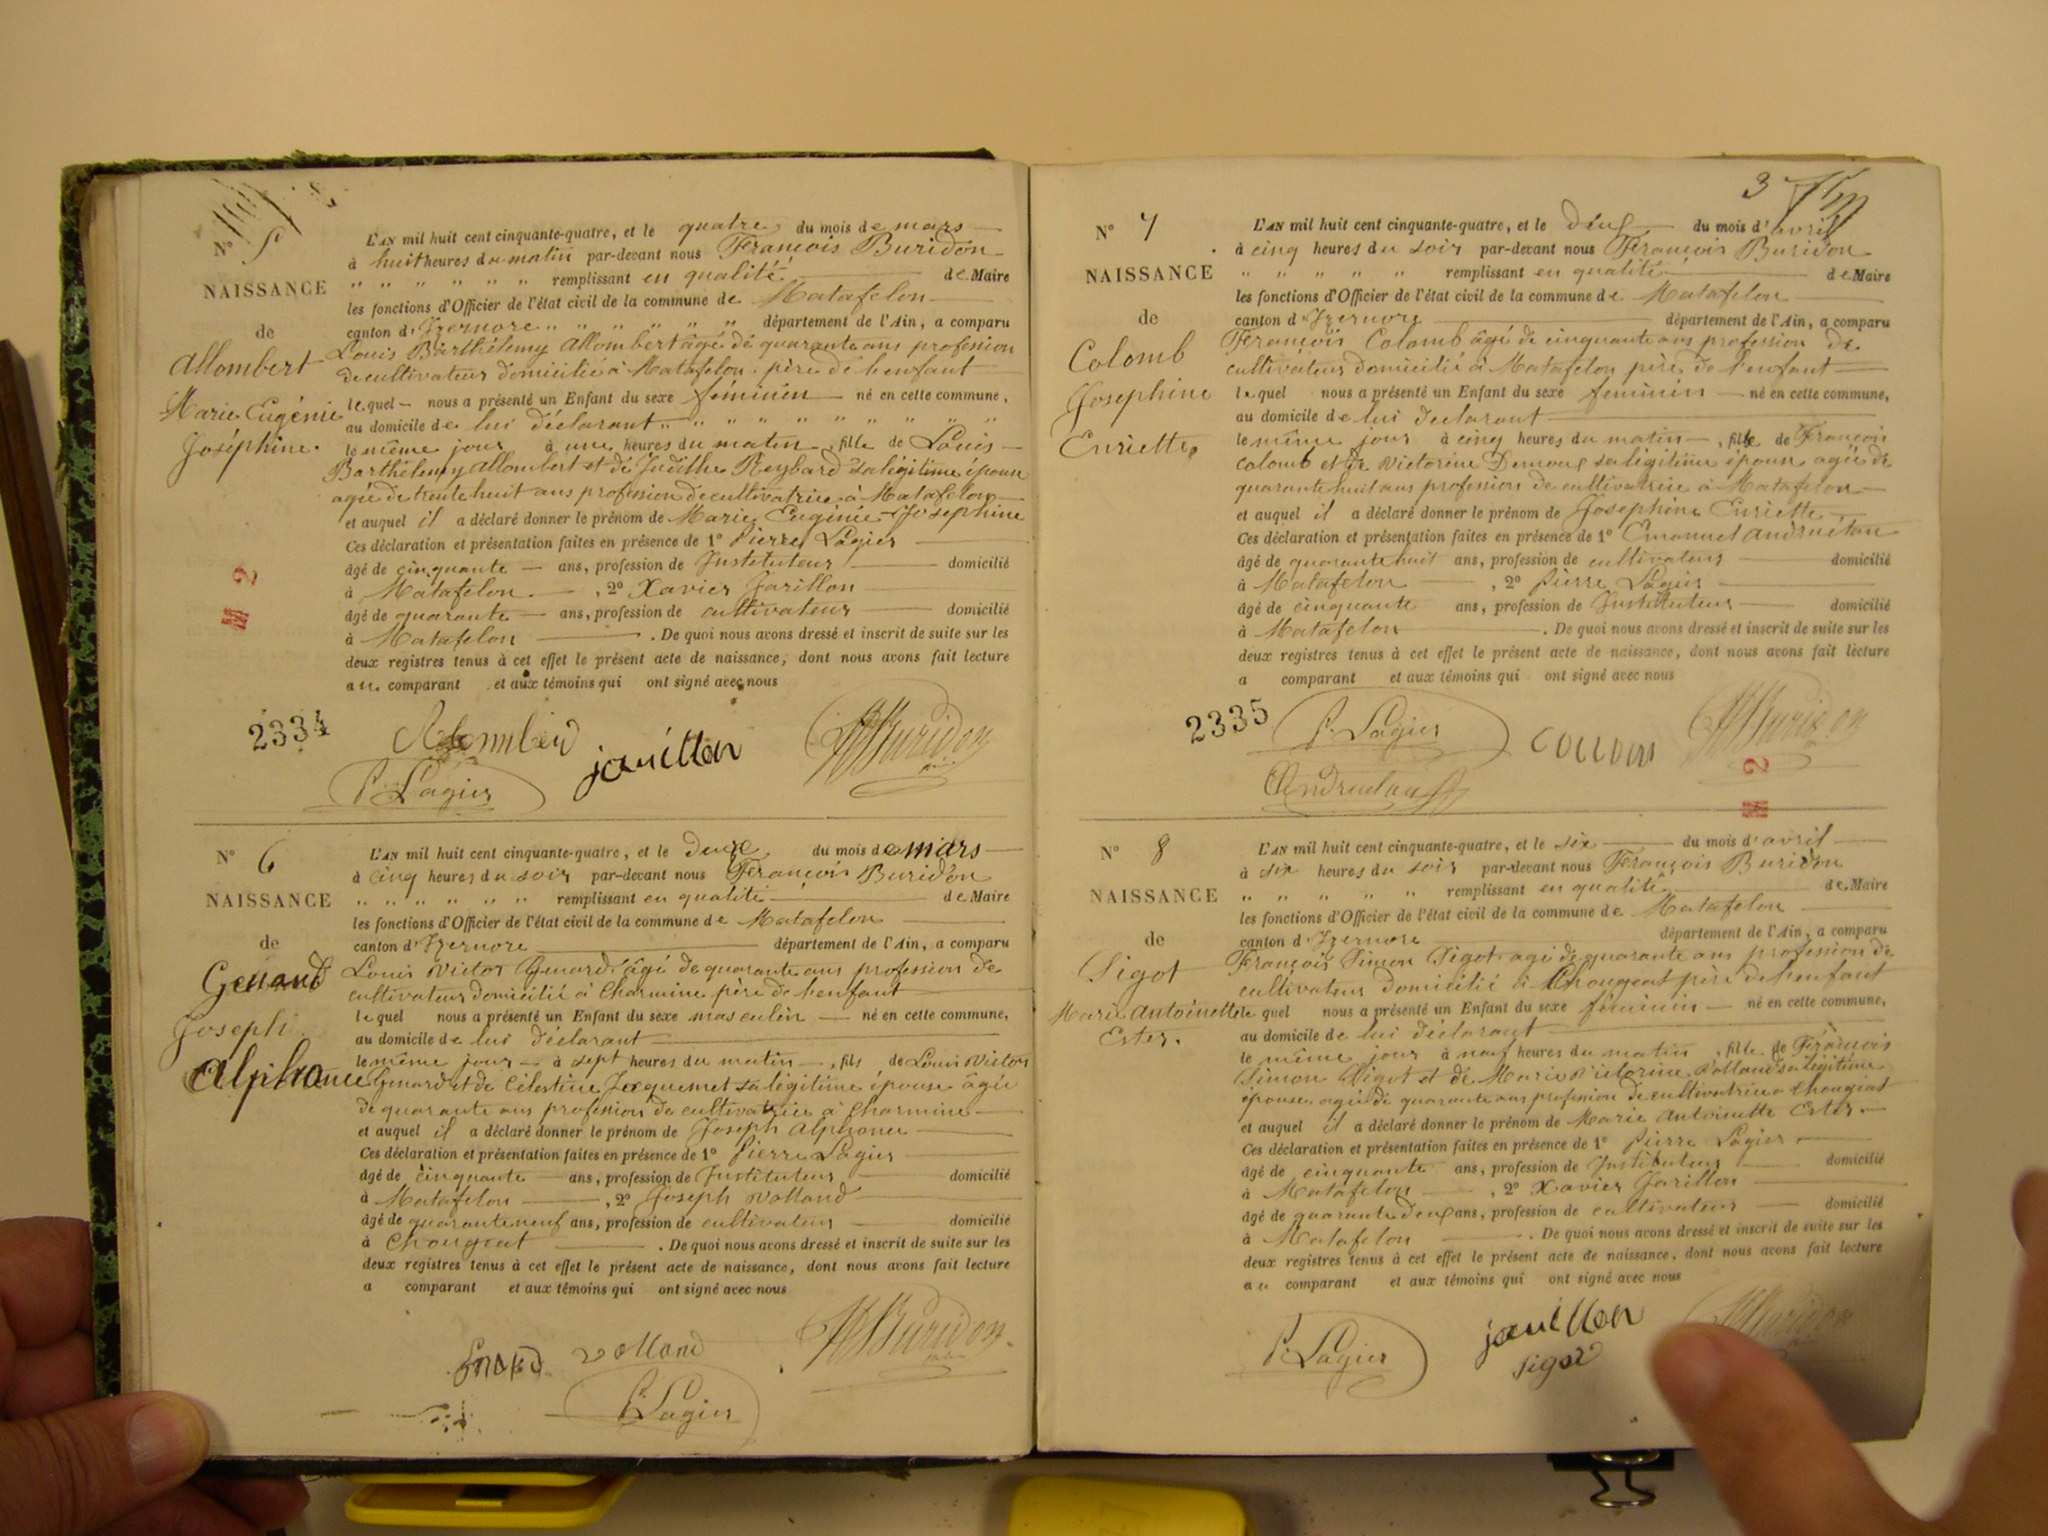 N° 5
NAISSANCE
de
Allombert
Marie Eugénie
Joséphine.
L'AN mil huit cent cinquante-quatre, et le quatre du mois de mars
à huit heures du matin par-devant nous François Buridon
" " " " " " remplissant en qualité de Maire
les fonctions d'Officier de l'état civil de la commune de Matafelon
canton d'Izernore " " " " " département de l'Ain, a comparu
Louis Barthélemy Allombert âgé de quarante ans profession
de cultivateur domicilié à Matafelon père de l'enfant
lequel nous a présenté un Enfant du sexe féminin né en cette commune,
au domicile de lui déclarant " " " " " " " "
le même jour à une heures du matin, fille de Louis
Barthélemy Allombert et de Judithe Reybard sa légitime épouse
agée de trente huit ans profession de cultivatrice à Matafelon
et auquel il a déclaré donner le prénom de Marie Eugénie Josephine
Ces déclaration et présentation faites en présence de 1° Pierre Lagier
âgé de cinquante ans, profession de Instituteur domicilié
à Matafelon, 2° Xavier Jarillon
âgé de quarante ans, profession de cultivateur domicilié
à Matafelon. De quoi nous avons dressé et inscrit de suite sur les
deux registres tenus à cet effet le présent acte de naissance, dont nous avons fait lecture
au comparant et aux témoins qui ont signé avec nous
M 2
2334
jarillon
Buridon
P. Lagier
N° 6
NAISSANCE
de
Genard
Joseph
Alphonce
L'AN mil huit cent cinquante-quatre, et le douze du mois de mars
à cinq heures du soir par-devant nous François Buridon
" " " " " " remplissant en qualité de Maire
les fonctions d'Officier de l'état civil de la commune de Matafelon
canton d'Izernore département de l'Ain, a comparu
Louis Victor Genard âgé de quarante ans profession de
cultivateur domicilié à Charmine père de l'enfant
lequel nous a présenté un Enfant du sexe masculin né en cette commune,
au domicile de lui déclarant
le même jour à sept heures du matin, fils de Louis Victor
Genard et de Célestine Jacquemet sa légitime épouse agée
de quarante ans profession de cultivatrice à Charmine
et auquel il a déclaré donner le prénom de Joseph Alphonce
Ces déclaration et présentation faites en présence de 1° Pierre Lagier
âgé de cinquante ans, profession de Instituteur domicilié
à Matafelon, 2° Joseph Volland
âgé de quarante neuf ans, profession de cultivateur domicilié
à Chougeat. De quoi nous avons dressé et inscrit de suite sur les
deux registres tenus à cet effet le présent acte de naissance, dont nous avons fait lecture
a comparant et aux témoins qui ont signé avec nous
volland
Buridon
P. Lagier
3
N° 7
NAISSANCE
de
Colomb
Josephine
Enriette
L'AN mil huit cent cinquante-quatre, et le deux du mois d'avril
à cinq heures du soir par-devant nous François Buridon
" " " " " remplissant en qualité de Maire
les fonctions d'Officier de l'état civil de la commune de Matafelon
canton d'Izernore département de l'Ain, a comparu
François Colomb âgé de cinquante ans profession de
cultivateur domicilié à Matafelon père de l'enfant
lequel nous a présenté un Enfant du sexe féminin né en cette commune,
au domicile de lui déclarant
le même jour à cinq heures du matin, fille de François
Colomb et de Victorine sa légitime épouse agée de
quarante huit ans profession de cultivatrice à Matafelon
et auquel il a déclaré donner le prénom de Josephine Enriette
Ces déclaration et présentation faites en présence de 1° Emanuel Andruétan
âgé de quarante huit ans, profession de cultivateur domicilié
à Matafelon, 2° Pierre Lagier
âgé de cinquante ans, profession de Instituteur domicilié
à Matafelon. De quoi nous avons dressé et inscrit de suite sur les
deux registres tenus à cet effet le présent acte de naissance, dont nous avons fait lecture
a comparant et aux témoins qui ont signé avec nous
2335
P. Lagier
Buridon
M 2
N° 8
NAISSANCE
de
Sigot
Marie Antoinette
Ester.
L'AN mil huit cent cinquante-quatre, et le six du mois d'avril
à six heures du soir par-devant nous François Buridon
" " " " " remplissant en qualité de Maire
les fonctions d'Officier de l'état civil de la commune de Matafelon
canton d'Izernore département de l'Ain, a comparu
François Simon Sigot agé de quarante ans profession de
cultivateur domicilié à Chougeat père de l'enfant
lequel nous a présenté un Enfant du sexe féminin né en cette commune,
au domicile de lui déclarant
le même jour à neuf heures du matin, fille de François
Simon Sigot et de Marie Victorine Volland sa légitime
épouse agée de quarante ans profession de cultivatrice à Chougeat
et auquel il a déclaré donner le prénom de Marie Antoinette Ester.
Ces déclaration et présentation faites en présence de 1° Pierre Lagier
âgé de cinquante ans, profession de Instituteur domicilié
à Matafelon, 2° Xavier Jarillon
âgé de quarante deux ans, profession de cultivateur domicilié
à Matafelon. De quoi nous avons dressé et inscrit de suite sur les
deux registres tenus à cet effet le présent acte de naissance, dont nous avons fait lecture
au comparant et aux témoins qui ont signé avec nous
P. Lagier
jarillon
sigot
Buridon